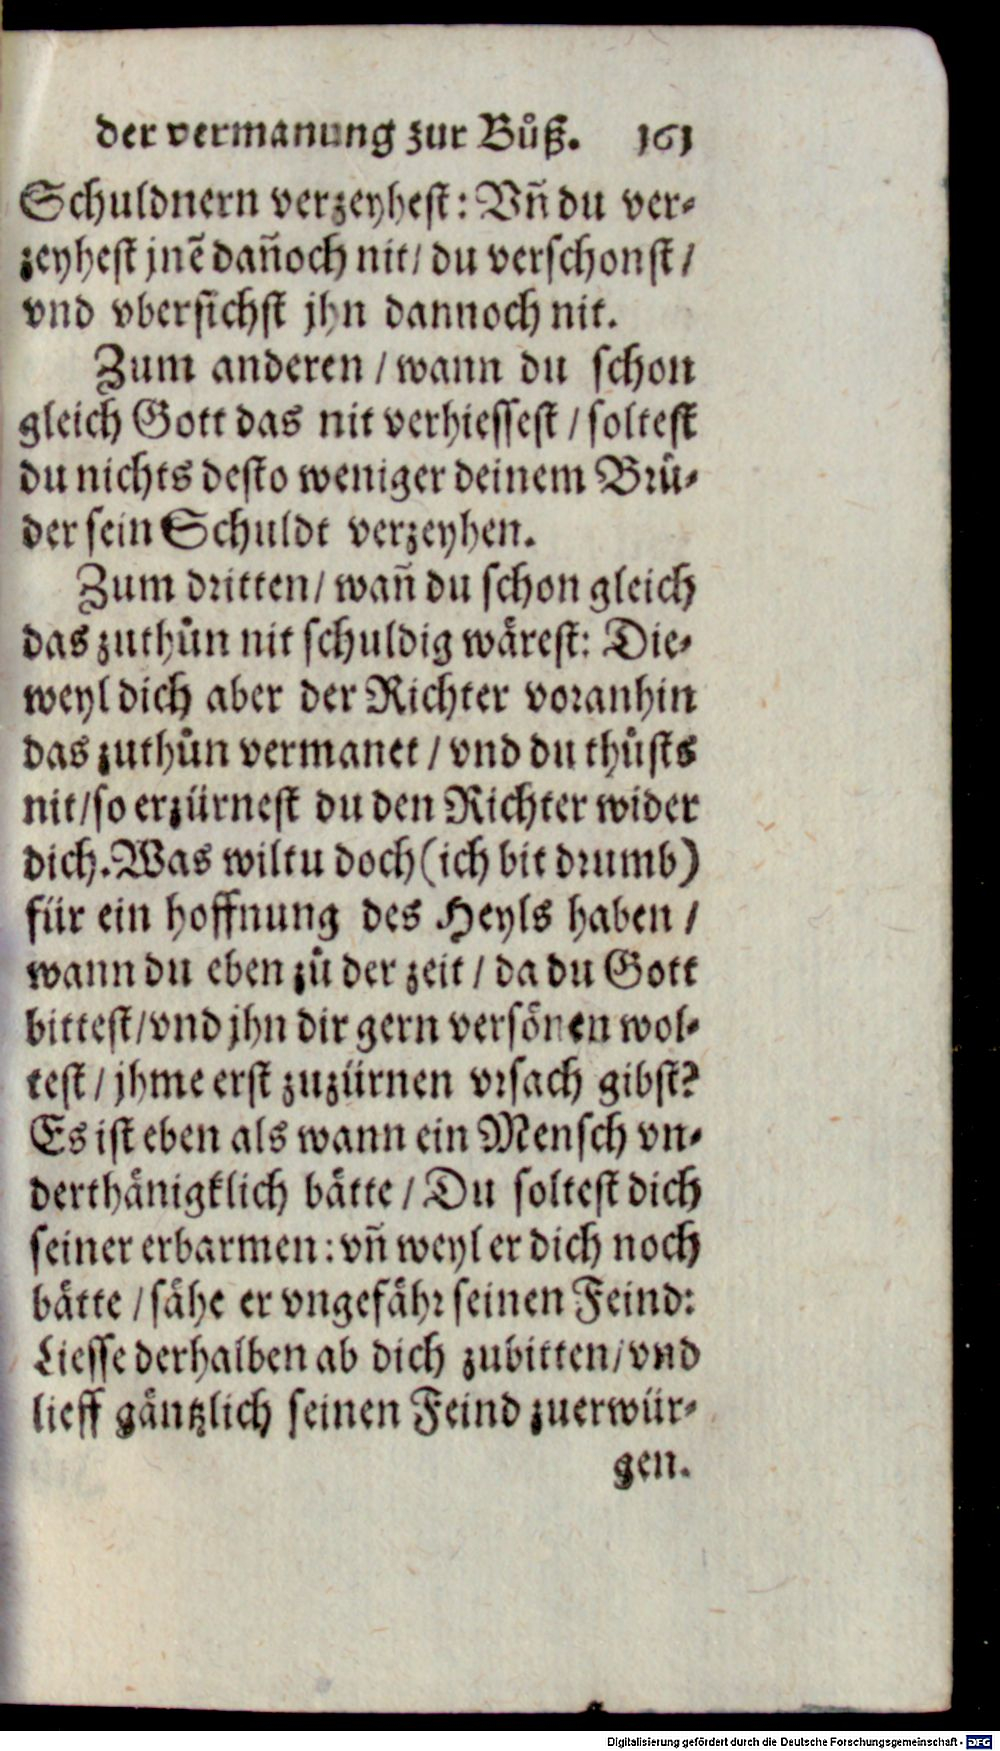 der vermanung zur Bůß. 161
Schuldnern verzeyhest: Vñ du ver-
zeyhest jnẽ dañoch nit/ du verschonst/
vnd vbersichst jhn dannoch nit.
Zum anderen / wann du schon
gleich Gott das nit verhiessest / soltest
du nichts desto weniger deinem Brů-
der sein Schuldt verzeyhen.
Zum dritten/ wañ du schon gleich
das zuthůn nit schuldig wärest: Die-
weyl dich aber der Richter voranhin
das zuthůn vermanet / vnd du thůsts
nit/so erzürnest du den Richter wider
dich. Was wiltu doch (ich bit drumb)
für ein hoffnung des Heyls haben /
wann du eben zů der zeit / da du Gott
bittest/vnd jhn dir gern versönen wol-
test / jhme erst zuzürnen vrsach gibst?
Es ist eben als wann ein Mensch vn-
derthänigklich bätte / Du soltest dich
seiner erbarmen: vñ weyl er dich noch
bätte / sähe er vngefähr seinen Feind:
Liesse derhalben ab dich zubitten/ vnd
lieff gäntzlich seinen Feind zuerwür-
gen.
Digitalisierung gefördert durch die Deutsche Forschungsgemeinschaft - DFG